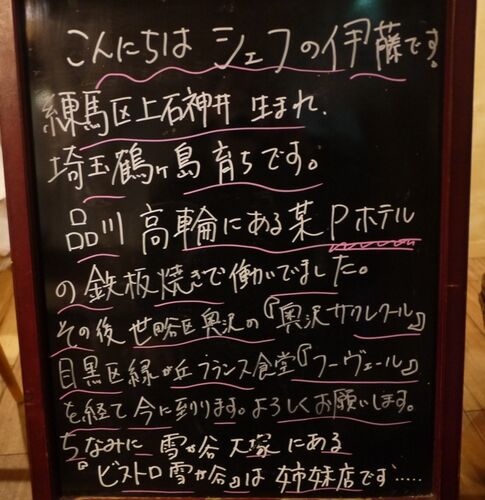 こんにちは シェフの伊藤です。
練馬区上石神井 生まれ、
埼玉鶴ヶ島 育ちです。
品川 高輪にある某Pホテル
の鉄板焼きで働いでました。
その後 世田谷区奥沢の『奥沢サクレクール』
目黒区緑が丘フランス食堂『フーヴェール』
を経て 今に至ります。よろしくお願いします。
ちなみに 雪が谷 大塚 にある
『ビストロ雪が谷』は 姉妹店です.....